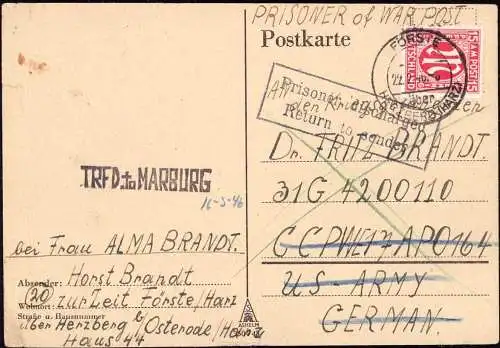 PRISONER of WAR POST
Postkarte
FÖRSTE
über
15 AM POST 15
DEUTSCHLAND
An den Kriegsgefangenen
Prisoner discharged
Return to sender
Dr. FRITZ BRANDT.
31G 4200110
CCPWE 17, APO 164
US-ARMY
GERMAN.
TRFD: to MARBURG
16-5-46
bei Frau ALMA BRANDT.
Absender: Horst Brandt
(20)
Wohnort: zurZeit Förste/Harz
Straße u. Hausnummer
über Herzberg b/ Osterode/Harz
Haus 44